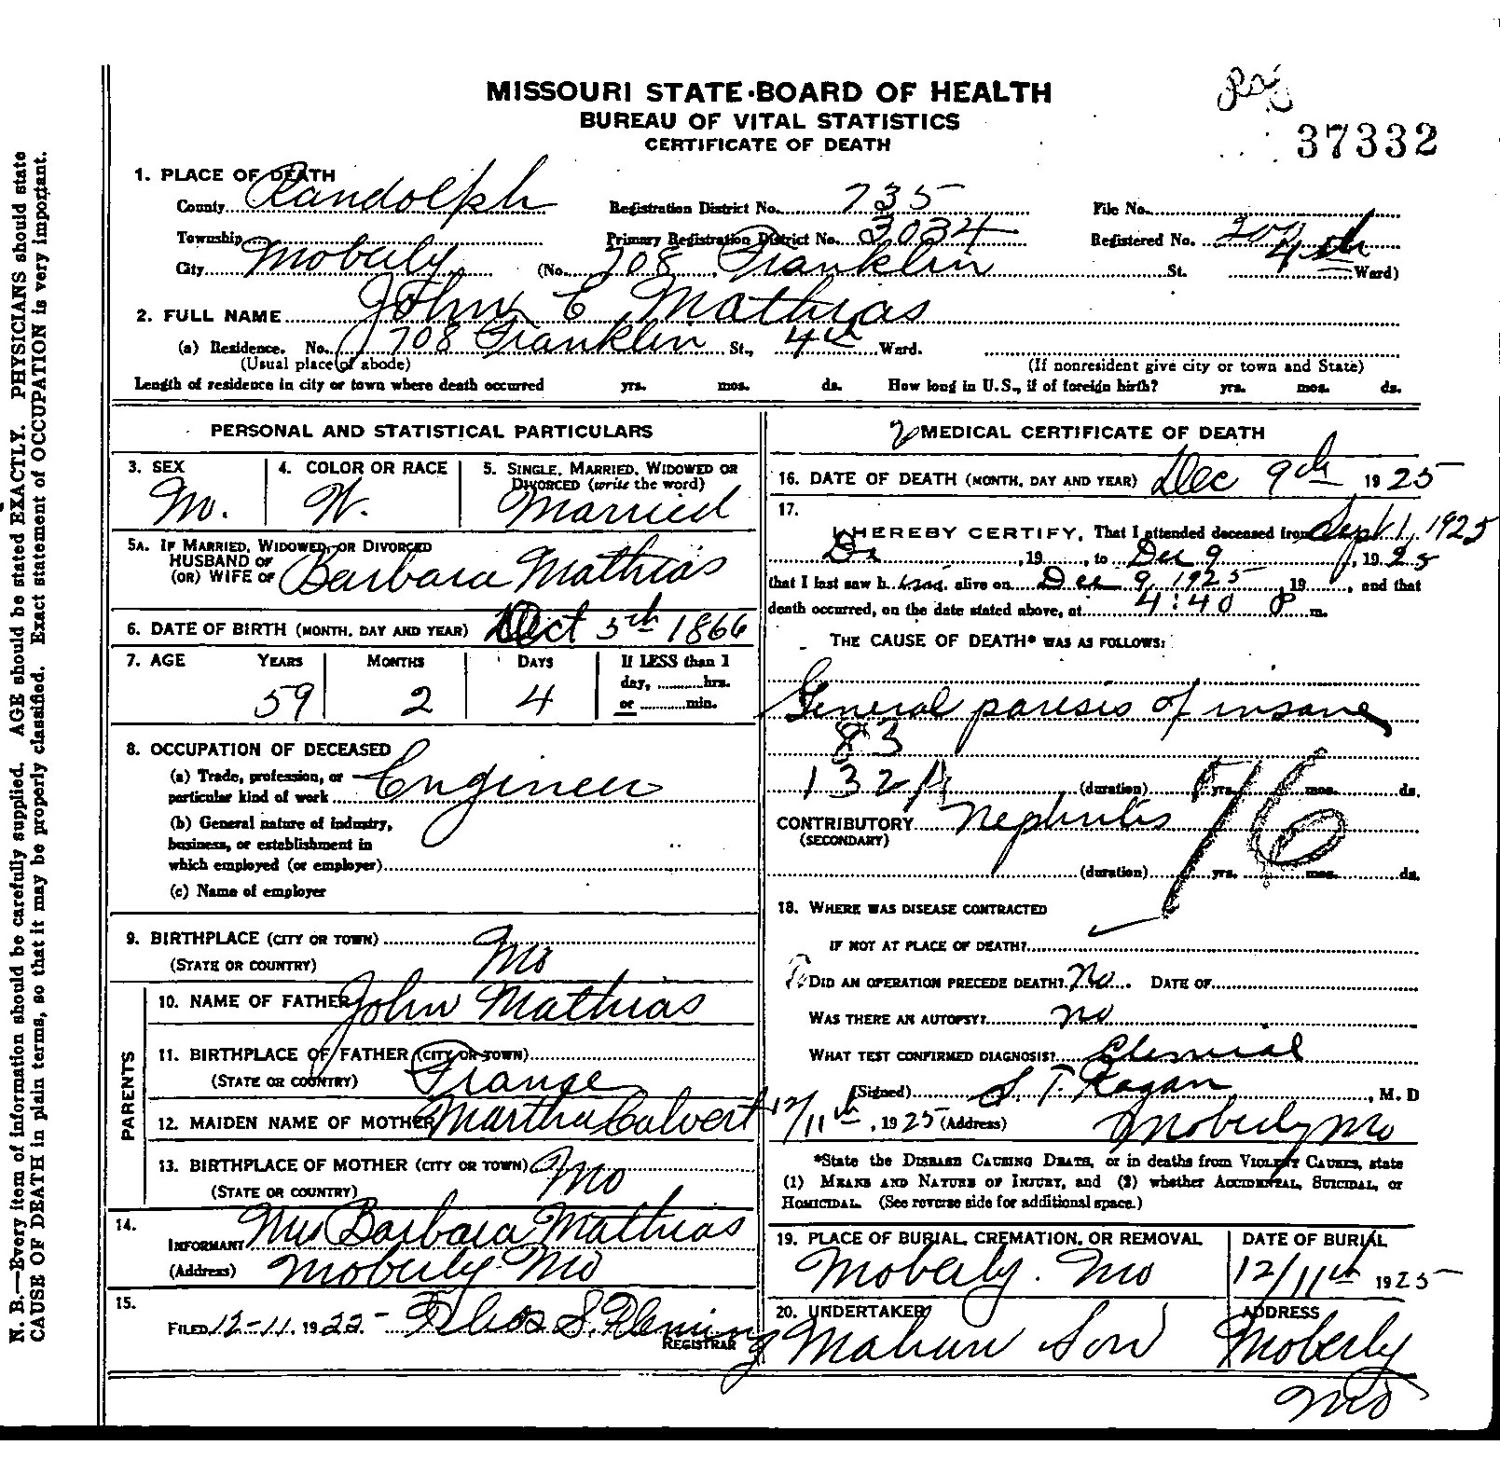 MISSOURI STATE BOARD OF HEALTH
BUREAU OF VITAL STATISTICS
CERTIFICATE OF DEATH
37332
1. PLACE OF DEATH
County Randolph Registration District No. 735 File No.
Township Primary Registration District No. 3034 Registered No.
City Moberly (No. 708 Franklin St. 4th Ward)
2. FULL NAME John E Mathias
(a) Residence. No. 708 Franklin St., 4th Ward.
(Usual place of abode) (If nonresident give city or town and State)
Length of residence in city or town where death occurred yrs. mos. ds. How long in U.S., if of foreign birth? yrs. mos. ds.
PERSONAL AND STATISTICAL PARTICULARS
3. SEX 4. COLOR OR RACE 5. SINGLE, MARRIED, WIDOWED OR DIVORCED (write the word)
M. W. Married
5A. IF MARRIED, WIDOWED, OR DIVORCED
HUSBAND OF
(OR) WIFE OF Barbara Mathias
6. DATE OF BIRTH (MONTH, DAY AND YEAR) Oct 5th 1866
7. AGE YEARS MONTHS DAYS If LESS than 1
day, ........hrs.
or ........min.
59 2 4
8. OCCUPATION OF DECEASED
(a) Trade, profession, or
particular kind of work Engineer
(b) General nature of industry,
business, or establishment in
which employed (or employer)
(c) Name of employer
9. BIRTHPLACE (CITY OR TOWN)
(STATE OR COUNTRY) Mo
PARENTS
10. NAME OF FATHER John Mathias
11. BIRTHPLACE OF FATHER (CITY OR TOWN)
(STATE OR COUNTRY) France
12. MAIDEN NAME OF MOTHER Martha Calvert
13. BIRTHPLACE OF MOTHER (CITY OR TOWN)
(STATE OR COUNTRY) Mo
14.
INFORMANT Mrs Barbara Mathias
(Address) Moberly Mo
15.
FILED 12-11, 1922 S. Fleming
REGISTRAR
MEDICAL CERTIFICATE OF DEATH
16. DATE OF DEATH (MONTH, DAY AND YEAR) Dec 9th 1925
17.
I HEREBY CERTIFY, That I attended deceased from Sept 1, 1925
, 19 , to Dec 9 , 1925
that I last saw h im alive on Dec 9, 1925, 19 , and that
death occurred, on the date stated above, at 4:40 P m.
THE CAUSE OF DEATH* WAS AS FOLLOWS:
General paresis of insane
83
132A (duration) yrs. mos. ds.
CONTRIBUTORY Nephritis
(SECONDARY)
76
(duration) yrs. mos. ds.
18. WHERE WAS DISEASE CONTRACTED
IF NOT AT PLACE OF DEATH?
DID AN OPERATION PRECEDE DEATH? No. DATE OF
WAS THERE AN AUTOPSY? no
WHAT TEST CONFIRMED DIAGNOSIS?
(Signed) S. T. Ragan, M. D
12/11th, 1925 (Address) Moberly Mo
*State the DISEASE CAUSING DEATH, or in deaths from VIOLENT CAUSES, state
(1) MEANS AND NATURE OF INJURY, and (2) whether ACCIDENTAL, SUICIDAL, or
HOMICIDAL. (See reverse side for additional space.)
19. PLACE OF BURIAL, CREMATION, OR REMOVAL DATE OF BURIAL
Moberly. Mo 12/11th 1925
20. UNDERTAKER ADDRESS
Mahan Son Moberly
Mo
N. B.—Every item of information should be carefully supplied. AGE should be stated EXACTLY. PHYSICIANS should state
CAUSE OF DEATH in plain terms, so that it may be properly classified. Exact statement of OCCUPATION is very important.